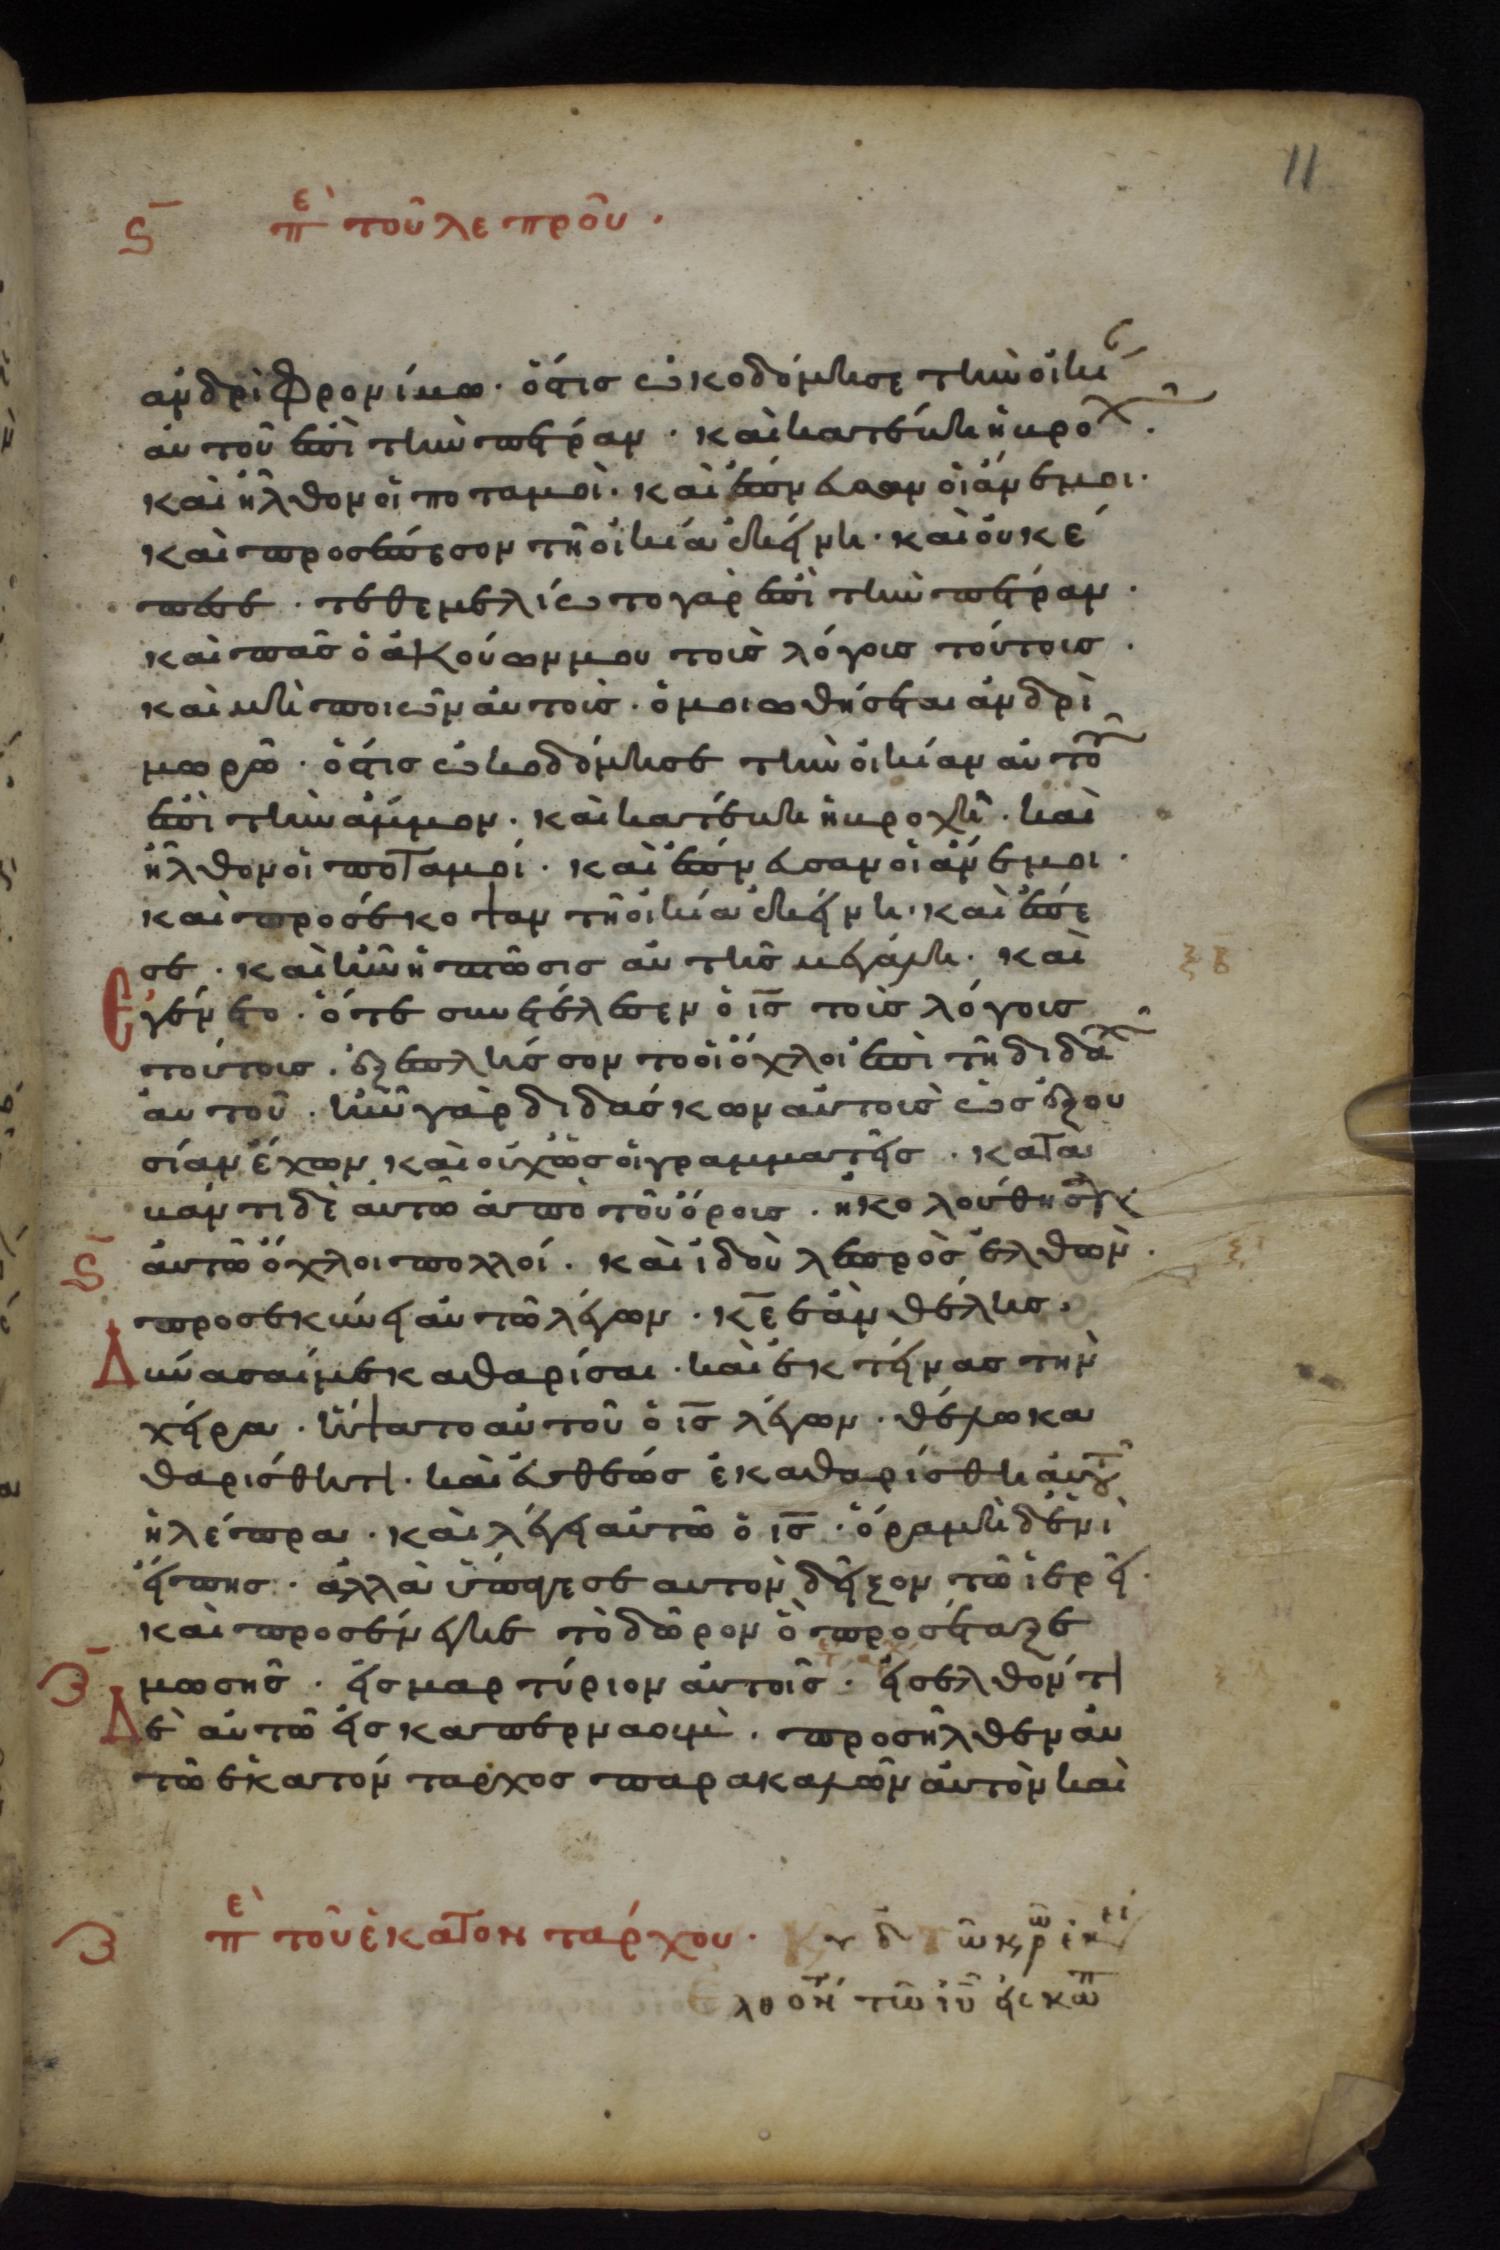 11
ϛ̄ πὲ τοῦ λεπροῦ.
ἀνδρὶ φρονίμω· ὅστις ὠκοδόμησε τὴν οἰκί
αὐτοῦ ἐπὶ τὴν πέτραν· καὶ κατέβη ἡ βροχ.
καὶ ἦλθον οἱ ποταμοὶ· καὶ ἔπνευσαν οἱ ἄνεμοι·
καὶ προσέπεσον τῆ οἰκία ἐκείνη· καὶ οὐκ ἔ
πεσε· τεθεμελίωτο γὰρ ἐπὶ τὴν πέτραν·
καὶ πᾶς ὁ ἀκούων μου τοὺς λόγους τούτους·
καὶ μὴ ποιῶν αὐτοὺς· ὁμοιωθήσεται ἀνδρὶ
μωρῶ· ὅστις ὠκοδόμησε τὴν οἰκίαν αὐτοῦ
ἐπὶ τὴν ἄμμον· καὶ κατέβη ἡ βροχὴ· καὶ
ἦλθον οἱ ποταμοί· καὶ ἔπνευσαν οἱ ἄνεμοι·
καὶ προσέκοψαν τῆ οἰκία ἐκείνη· καὶ ἔπε
σε· καὶ ἦν ἡ πτῶσις αὐτῆς μεγάλη· καὶ
ἐγένετο· ὅτε συνετέλεσεν ὁ ι̅ς̅ τοὺς λόγους
τούτους· ἐξεπλήσσοντο οἱ ὄχλοι ἐπὶ τῆ διδαχ
αὐτοῦ· ἦν γὰρ διδάσκων αὐτοὺς ὡς ἐξου
σίαν ἔχων καὶ οὐχ ὡς οἱ γραμματεῖς· κατα
βάντι δὲ αὐτῶ ἀπὸ τοῦ ὄρους· ἠκολούθησαν
ϛ̄ αὐτῶ ὄχλοι πολλοί· καὶ ἰδοὺ λεπρὸς ἐλθὼν·
προσεκύνει αὐτῶ λέγων· κ̅ε̅ ἐὰν θέλης·
Δύνασαί με καθαρίσαι· καὶ ἐκτείνας τὴν
χεῖρα· ἥψατο αὐτοῦ ὁ ι̅ς̅ λέγων· θέλω κα
θαρίσθητι· καὶ εὐθέως ἐκαθαρίσθη αὐτοῦ
ἡ λέπρα· καὶ λέγει αὐτῶ ὁ ι̅ς̅· ὅρα μηδενὶ
εἴπης· ἀλλὰ ὕπαγε σεαυτὸν δεῖξον τῶ ἱερεῖ·
καὶ προσένεγκε τὸ δῶρον ὃ προσέταξε
μωσῆς· εἰς μαρτύριον αὐτοῖς· εἰσελθόντι
Δὲ αὐτῶ εἰς καπερναοὺμ· προσῆλθεν αὐ
τῶ ἑκατόνταρχος παρακαλῶν αὐτὸν καὶ
ζ̄ πὲ τοῦ ἑκατοντάρχου.
λθόντ τῶ ι̅υ̅ εἰς καπ